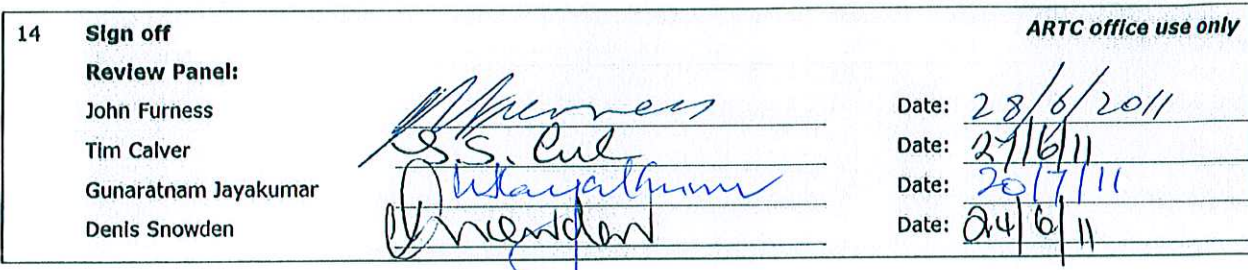 14 Sign off ARTC office use only
Review Panel:
John Furness Date: 28/6/2011
Tim Calver Date: 27/6/11
Gunaratnam Jayakumar Date: 20/7/11
Denis Snowden Date: 24/6/11